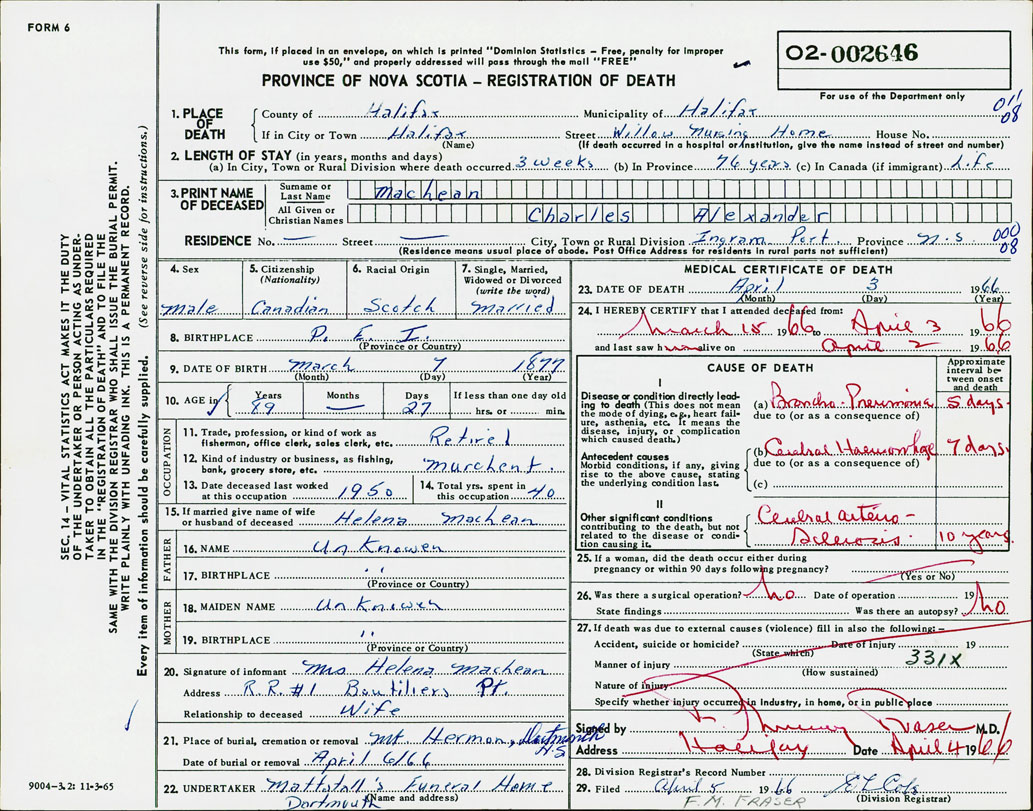 FORM 6
This form, if placed in an envelope, on which is printed "Dominion Statistics – Free, penalty for improper
use $50," and properly addressed will pass through the mail "FREE"
PROVINCE OF NOVA SCOTIA – REGISTRATION OF DEATH
02-002646
For use of the Department only
011
08
1. PLACE OF DEATH
County of Halifax Municipality of Halifax
If in City or Town Halifax Street Willow Nursing Home House No.
(Name) (If death occurred in a hospital or institution, give the name instead of street and number)
2. LENGTH OF STAY (in years, months and days)
(a) In City, Town or Rural Division where death occurred 3 weeks (b) In Province 76 years (c) In Canada (if immigrant) Life
3. PRINT NAME OF DECEASED
Surname or Last Name MacLean
All Given or Christian Names Charles Alexander
RESIDENCE No. — Street — City, Town or Rural Division Ingram Port, Province N.S. 000
08
(Residence means usual place of abode. Post Office Address for residents in rural parts not sufficient)
4. Sex
male
5. Citizenship
(Nationality)
Canadian
6. Racial Origin
Scotch
7. Single, Married,
Widowed or Divorced
(write the word)
Married
8. BIRTHPLACE P. E. I.
(Province or Country)
9. DATE OF BIRTH March 7 1877
(Month) (Day) (Year)
10. AGE in
Years 89
Months —
Days 27
If less than one day old
hrs. or min.
OCCUPATION
11. Trade, profession, or kind of work as
fisherman, office clerk, sales clerk, etc. Retired
12. Kind of industry or business, as fishing,
bank, grocery store, etc. Murchent.
13. Date deceased last worked
at this occupation 1950
14. Total yrs. spent in
this occupation 40
15. If married give name of wife
or husband of deceased Helena MacLean
FATHER
16. NAME Un Knowen
17. BIRTHPLACE ''
(Province or Country)
MOTHER
18. MAIDEN NAME Un Knowen
19. BIRTHPLACE ''
(Province or Country)
20. Signature of informant Mrs Helena MacLean
Address R.R. #1 Boutiliers Pt.
Relationship to deceased Wife
21. Place of burial, cremation or removal Mt Hermon, Dartmouth
N.S
Date of burial or removal April 6/66
22. UNDERTAKER Mattatall's Funeral Home
(Name and address)
Dartmouth
MEDICAL CERTIFICATE OF DEATH
23. DATE OF DEATH April 3 1966
(Month) (Day) (Year)
24. I HEREBY CERTIFY that I attended deceased from:
March 15 1966 to April 3 1966
and last saw him alive on April 2 1966
CAUSE OF DEATH
Approximate
interval be-
tween onset
and death
I
Disease or condition directly lead-
ing to death (This does not mean
the mode of dying, e.g., heart fail-
ure, asthenia, etc. It means the
disease, injury, or complication
which caused death.)
(a) Broncho Pneumonia 5 days
due to (or as a consequence of)
Antecedent causes
Morbid conditions, if any, giving
rise to the above cause, stating
the underlying condition last.
(b) Cerebral Haemorrhage 7 days
due to (or as a consequence of)
(c)
II
Other significant conditions
contributing to the death, but not
related to the disease or condi-
tion causing it.
Cerebral Arterio-
Sclerosis. 10 years
25. If a woman, did the death occur either during
pregnancy or within 90 days following pregnancy?
(Yes or No)
26. Was there a surgical operation? No Date of operation 19
State findings Was there an autopsy? No
27. If death was due to external causes (violence) fill in also the following:–
Accident, suicide or homicide? Date of injury 19
(State which)
Manner of injury 331X
(How sustained)
Nature of injury
Specify whether injury occurred in industry, in home, or in public place
Signed by F. Murray Fraser M.D.
Address Halifax Date April 4 1966
28. Division Registrar's Record Number
29. Filed April 5 1966
(Division Registrar)
F.M. FRASER
SEC. 14 – VITAL STATISTICS ACT MAKES IT THE DUTY
OF THE UNDERTAKER OR PERSON ACTING AS UNDER-
TAKER TO OBTAIN ALL THE PARTICULARS REQUIRED
IN THE "REGISTRATION OF DEATH" AND TO FILE THE
SAME WITH THE DIVISION REGISTRAR WHO SHALL ISSUE THE BURIAL PERMIT.
WRITE PLAINLY WITH UNFADING INK. THIS IS A PERMANENT RECORD.
Every item of information should be carefully supplied. (See reverse side for instructions.)
9004-3.2: 11-3-65